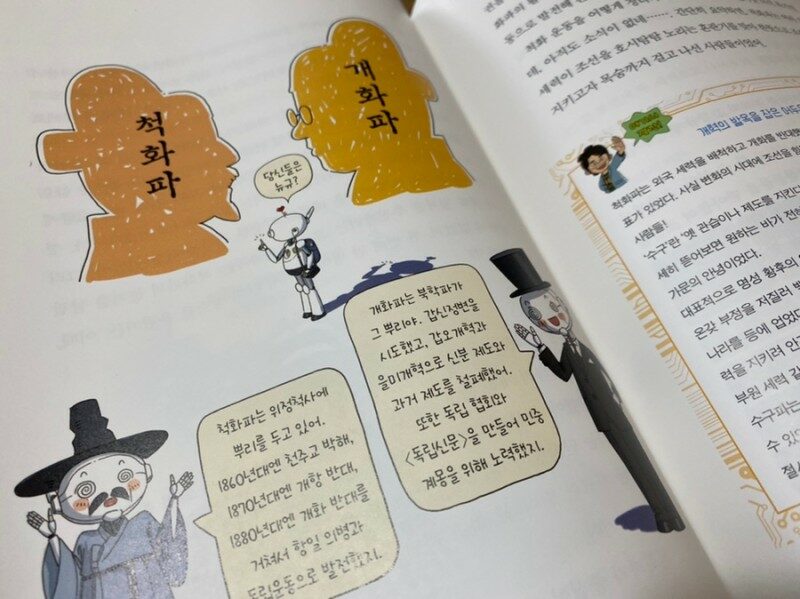 척화파
개화파
당신들은
뉴규?
개화파는 북학파가
그 뿌리야. 갑신정변을
시도했고, 갑오개혁과
을미개혁으로 신분 제도와
과거 제도를 철폐했어.
또한 독립 협회와
<독립신문>을 만들어 민중
계몽을 위해 노력했지.
척화파는 위정척사에
뿌리를 두고 있어.
1860년대엔 천주교 박해,
1870년대엔 개항 반대,
1880년대엔 개화 반대를
거쳐서 항일 의병과
독립운동으로 발전했지.
척화 운동을 어떻게
대, 아직도 소식이 없네…… 간단히
세력이 조선을 호시탐탐 노리는 혼란기를 맞아
지키고자 목숨까지 걸고 나선 사람들이었어.
개혁의 발목을 잡은
척화파는 외국 세력을 배척하고 개화를 반대
표가 있었다. 사실 변화의 시대에 조선을
사람들!
'수구'란 '옛 관습이나 제도를 지킨다
세히 뜯어보면 원하는 바가 전혀
가문의 안녕이었다.
대표적으로 명성 황후의
온갖 부정을 저질러
나라를 등에 업었다
력을 지키려
부원 세력
수구파는
수 있다